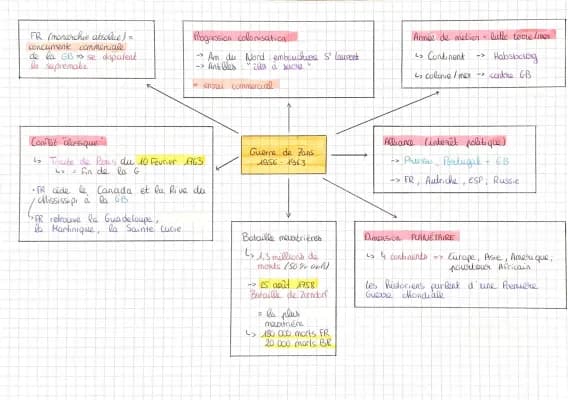 FR (monarchie absolue) =
concurrente commerciale
de la GB => se disputent
la suprématie
Progression colonisation
-> Am du Nord : embouchure St Laurent
-> Antilles "îles à sucre"
= enjeu commercial
Armée de métier - lutte terre/mer
↳ Continent -> Habsbourg
↳ colonie/mer -> contre GB
Conflit "classique"
↳ Traité de Paris du 10 février 1763
↳ = fin de la G
-FR cède le Canada et la Rive du
Mississipi à la GB
FR retrouve la Guadeloupe,
la Martinique, la Sainte Lucie
Guerre de 7ans
1756 - 1763
Alliance (intérêt politique)
-> Prusse, Portugal + GB
-> FR, Autriche, ESP, Russie
Bataille meurtrières
↳ 1,3 millions de
morts
-> 25 août 1758
Bataille de Zorndorf
= la plus
meurtrière
↳ 180 000 morts FR
20 000 morts BR
Dimension PLANÉTAIRE
↳ 4 continents => Europe, Asie, Amérique,
pourtour Africain
Les historiens parlent d'une Première
Guerre Mondiale